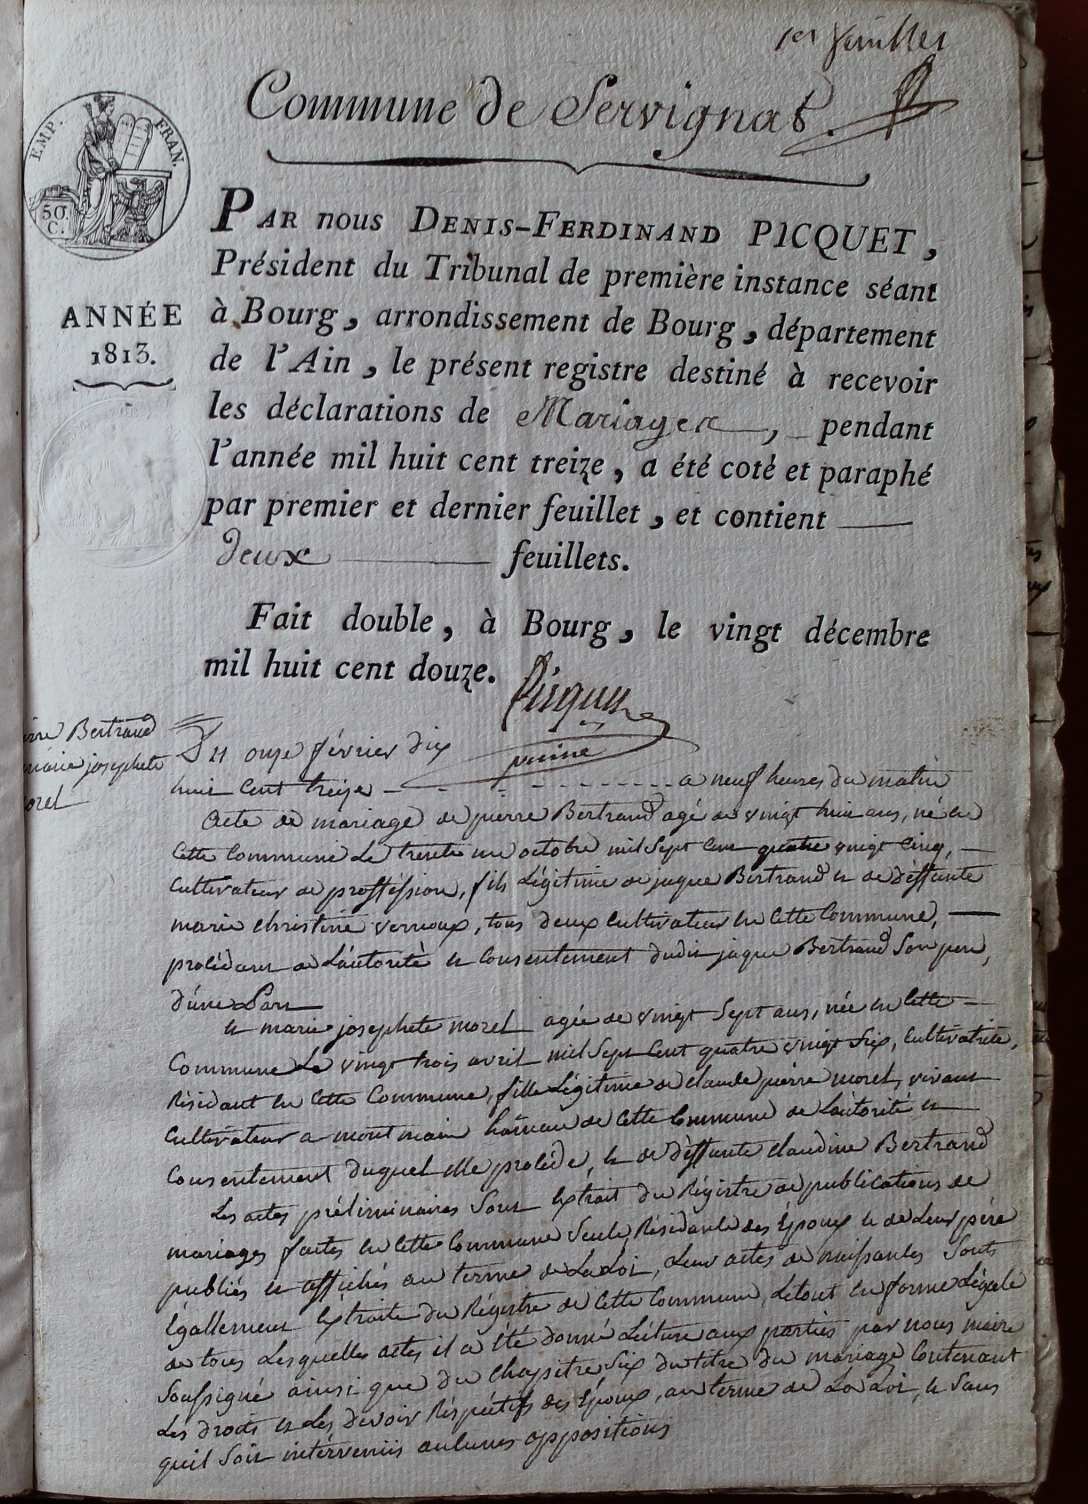 1er feuillet
Commune de Servignat.
EMP. FRAN.
50.
C.
ANNÉE
1813.
PAR nous DENIS-FERDINAND PICQUET,
Président du Tribunal de première instance séant
à Bourg, arrondissement de Bourg, département
de l'Ain, le présent registre destiné à recevoir
les déclarations de Mariages, pendant
l'année mil huit cent treize, a été coté et paraphé
par premier et dernier feuillet, et contient
deux feuillets.
Fait double, à Bourg, le vingt décembre
mil huit cent douze.
Picquet
Bertrand
marie josephete
morel
Du onze février dix
huit cent treize a neuf heures du matin
Acte de mariage de pierre Bertrand agé de vingt huit ans, né en
Cette Commune Le trente un octobre mil Sept Cent quatre vingt Cinq,
Cultivateur de proffession, fils Légitime de jaque Bertrand et de deffunte
marie christine vernoux, tous deux Cultivateur en Cette Commune,
procédant de L'autorité et Consentement dudit jaque Bertrand Son pere,
d'une Part
et marie josephete morel agée de vingt Sept ans, née en Cette
Commune Le vingt trois avril mil Sept Cent quatre vingt Six, Cultivatrice,
Résidant en Cette Commune, fille Légitime de claude pierre morel, vivant
Cultivateur a montmain hameau de Cette Commune de L'autorité et
Consentement duquel elle procède, et de deffunte claudine Bertrand
Les actes préliminaires Sont Extrait du Régistre de publications de
mariages faites en Cette Commune Seule Résidante des Époux et de Leur pére
publiés et affichés au terme de La Loi, Leur actes de naissances Sonts
Égallement Extraits du Régistre de Cette Commune, Letout en forme Légale
de tous Lesquelles actes il a été donné Lecture aux parties par nous maire
Soussigné ainsi que du Chapitre Six du titre du mariage Contenant
Les droits et Les devoir Réspectifs des Époux, au terme de La Loi, et Sans
quil Soit intérvenus aucunes oppositions